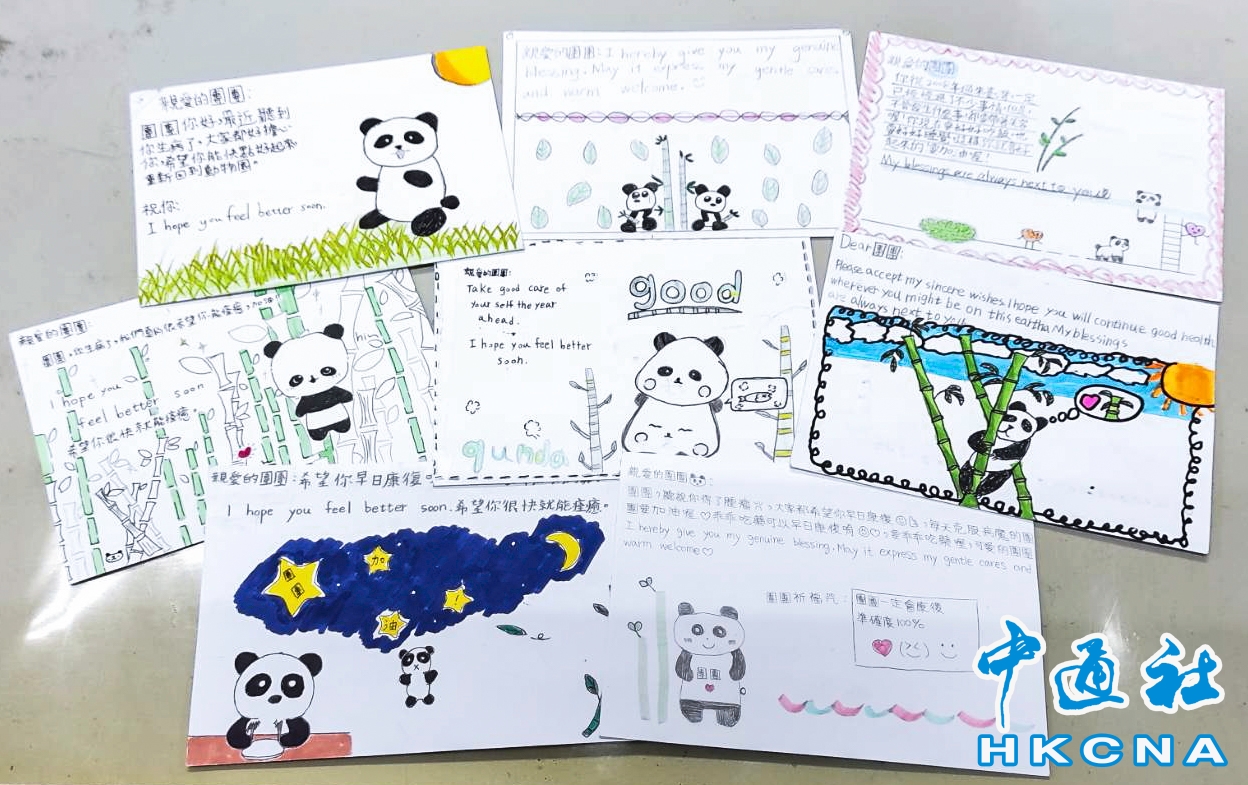 親愛的團團:
團團你好,最近聽到
你生病了,大家都好擔心
你,希望你能快點好起來
重新回到動物園。
祝你:
I hope you feel better soon.
親愛的團團:I hereby give you my genuine
blessing. May it express my gentle care.
and warm welcome.
親愛的團團
My blessings are always next to you.
親愛的團團:
團團,你生病了,我們真的很希望你能痊癒,加油!!
hi
I hope you
feel better soon
希望你很快就能痊癒。
親愛的團團:
Take good care of
your self the year
ahead.
I hope you feel better
soon.
good
qunda
Dear團團:
Please accept my sincere wishes. I hope you will continue good health
wherever you might be on this eartha. My blessings
are always next to you.
親愛的團團:希望你早日康復。
I hope you feel better soon. 希望你很快就能痊癒。
團團
加
油
!
親愛的團團:
團團,聽說你得了腫瘤,大家都希望你早日康復,每天克服病魔的團
團要加油喔♡乖乖吃藥可以早日康復唷♡要乖乖吃藥喔,可愛的團團
I hereby give you my genuine blessing. May it express my gentle cares and
warm welcome♡
團團祈福咒:
團團一定會康復
準確度100%
團團
中通社
HKCNA